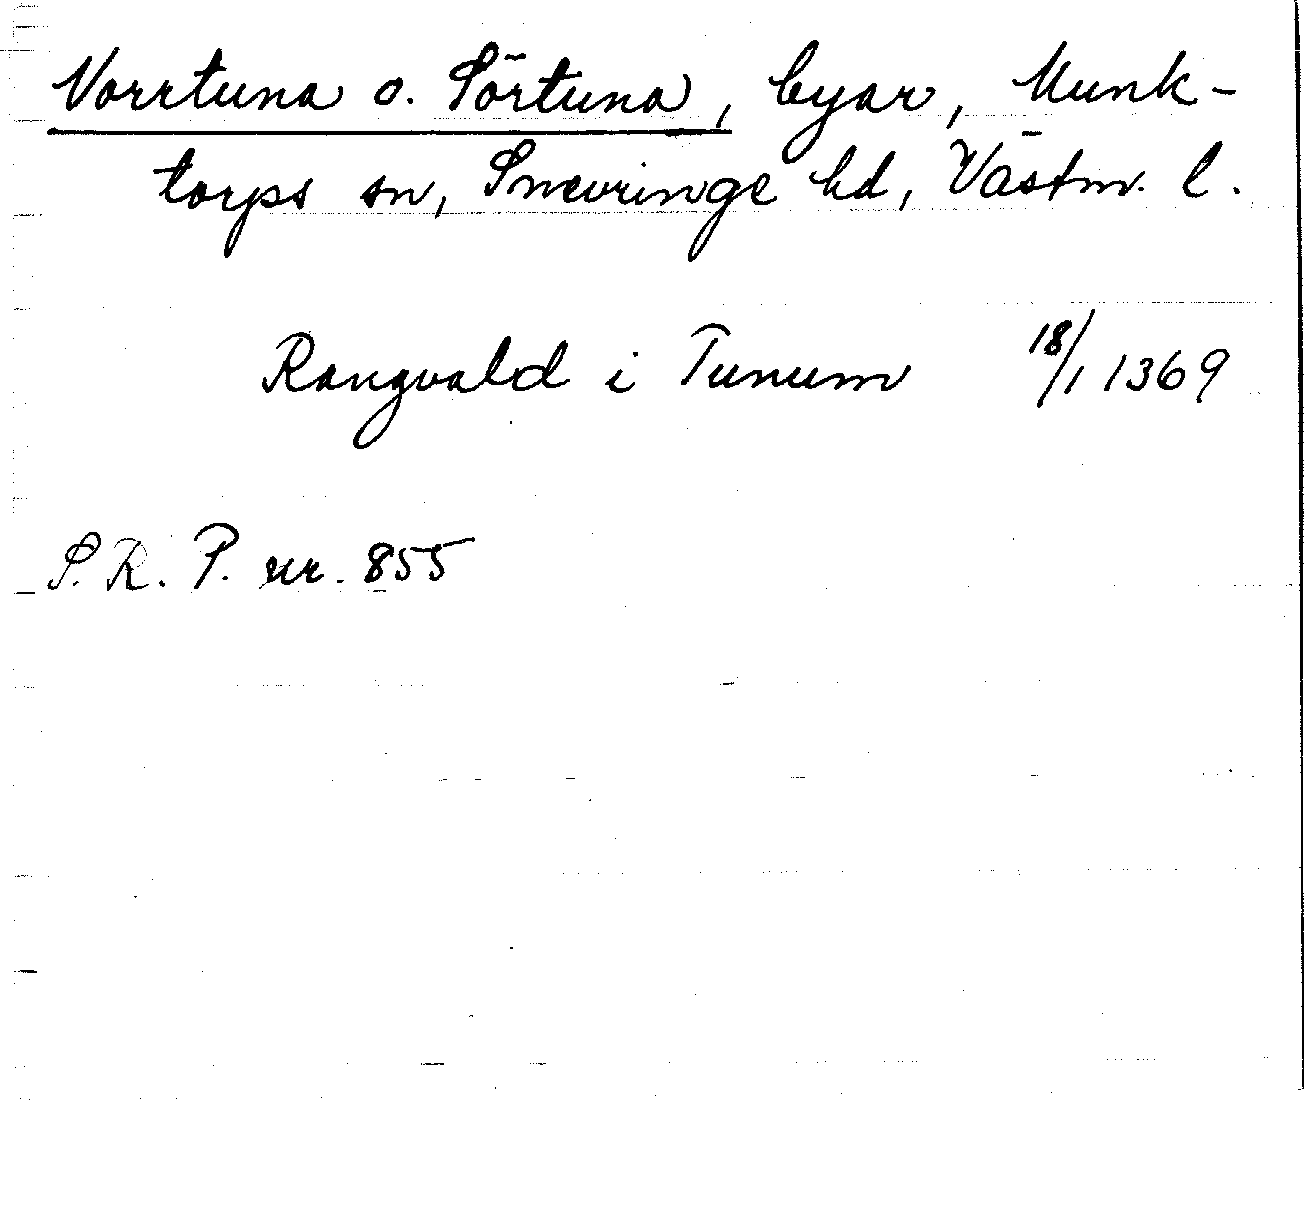 Norrtuna o. Sörtuna, byar, Munk-
torps sn, Snevringe hd, Västm. l.
Rangvald i Tunum 18/1 1369
S. R. P. nr. 855